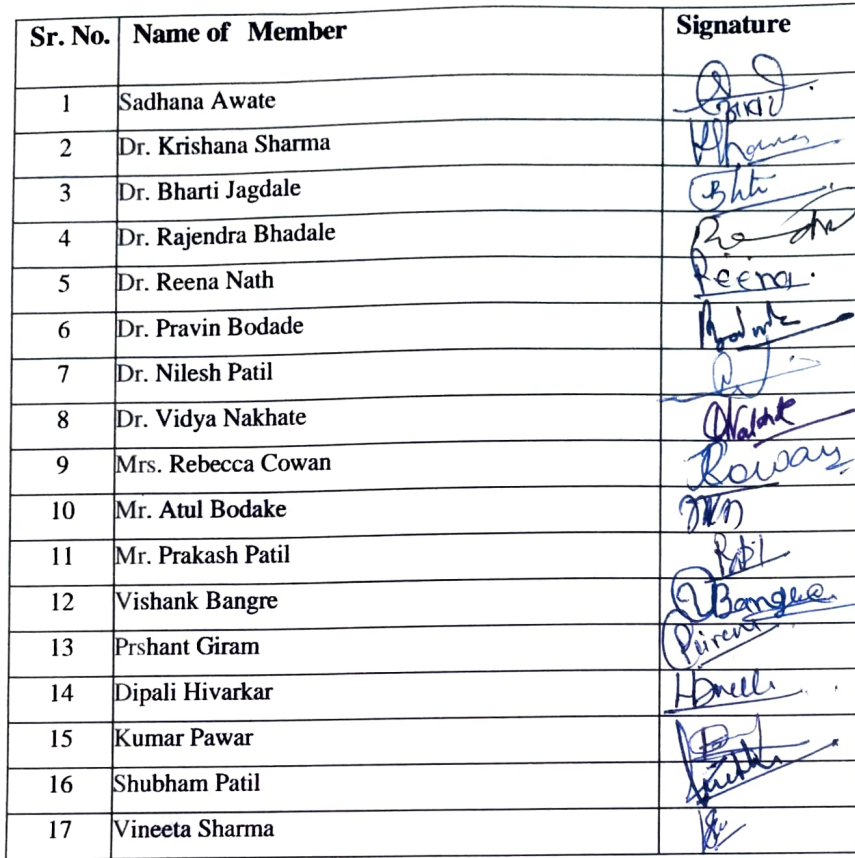 Sr. No. Name of Member Signature
1 Sadhana Awate
2 Dr. Krishana Sharma
3 Dr. Bharti Jagdale
4 Dr. Rajendra Bhadale
5 Dr. Reena Nath Reena.
6 Dr. Pravin Bodade
7 Dr. Nilesh Patil
8 Dr. Vidya Nakhate
9 Mrs. Rebecca Cowan
10 Mr. Atul Bodake
11 Mr. Prakash Patil
12 Vishank Bangre
13 Prshant Giram
14 Dipali Hivarkar
15 Kumar Pawar
16 Shubham Patil
17 Vineeta Sharma